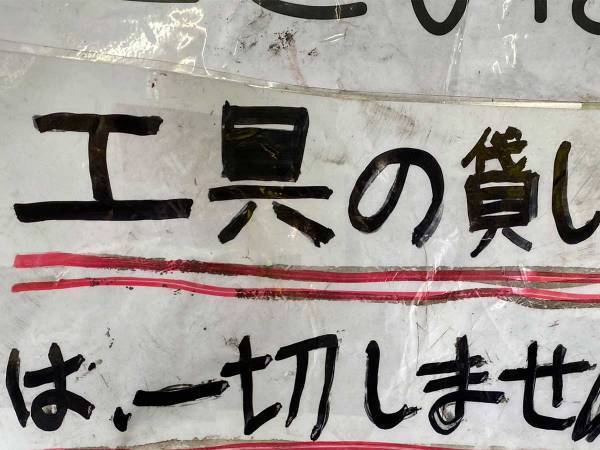 工具の貸し
は、一切しませ